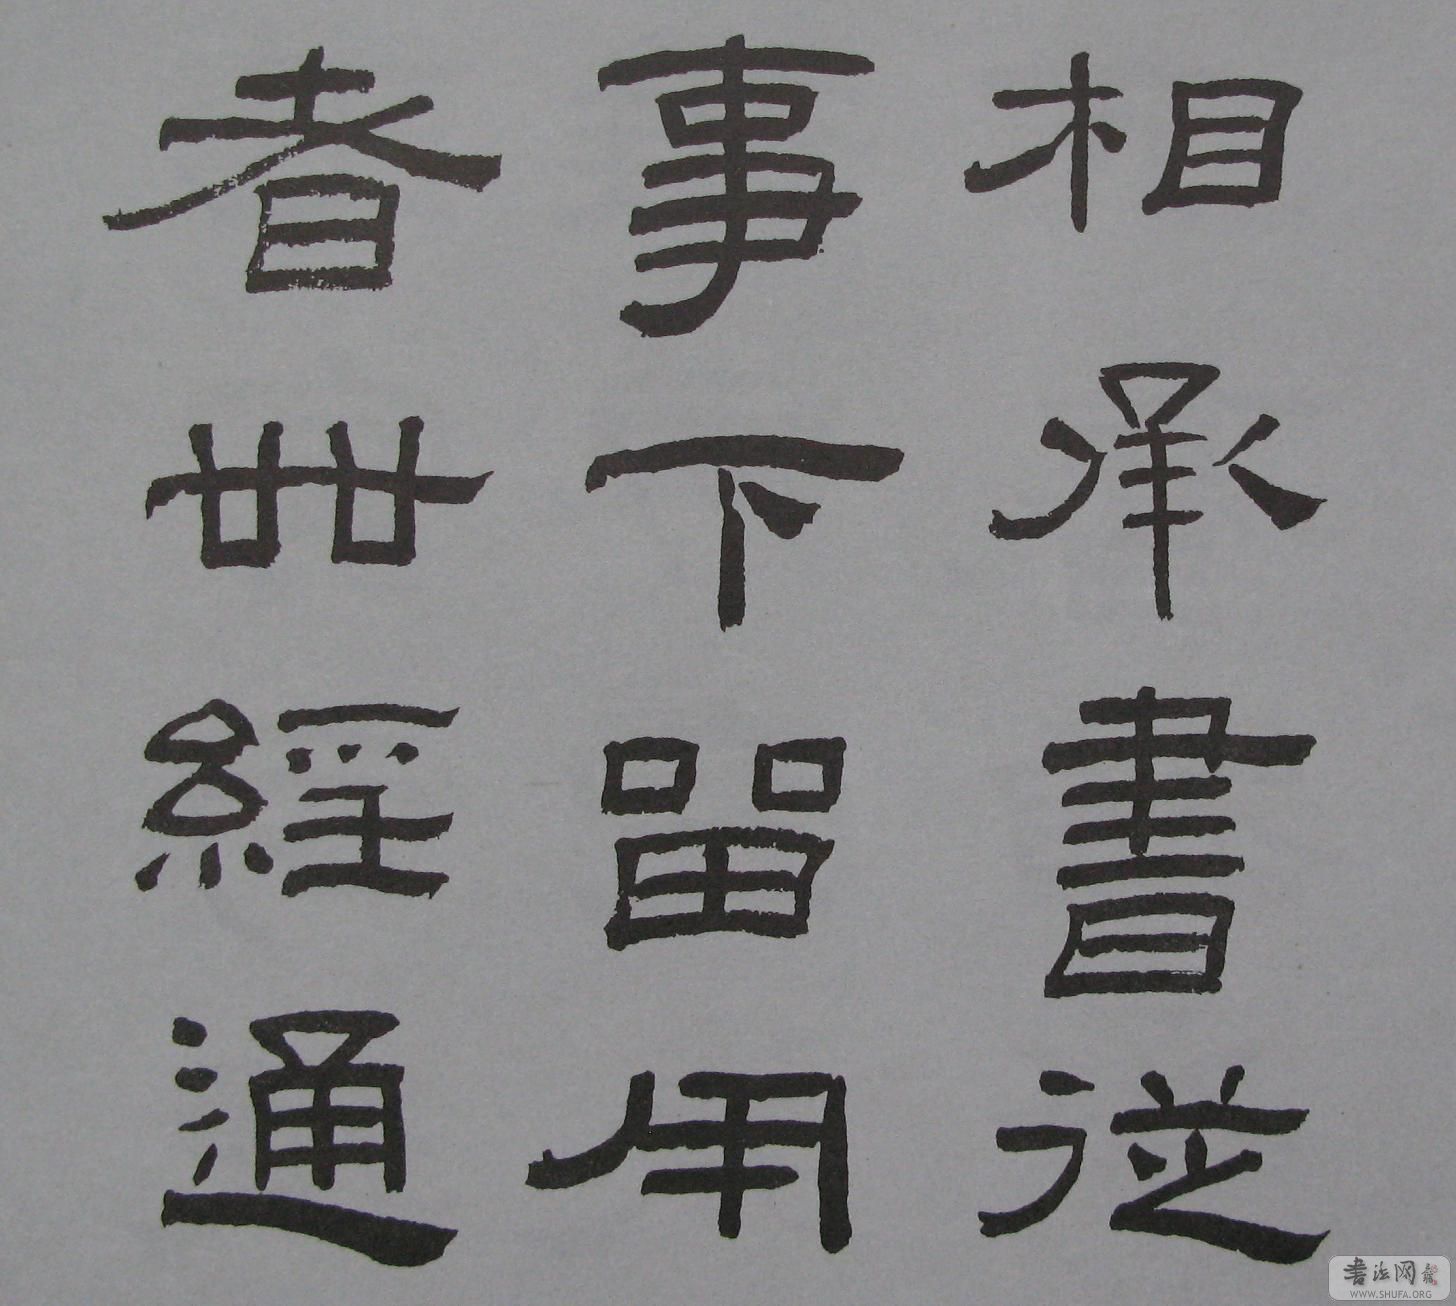 相承書從
事下留用
者卌經通
書法网
WWW.SHUFA.ORG